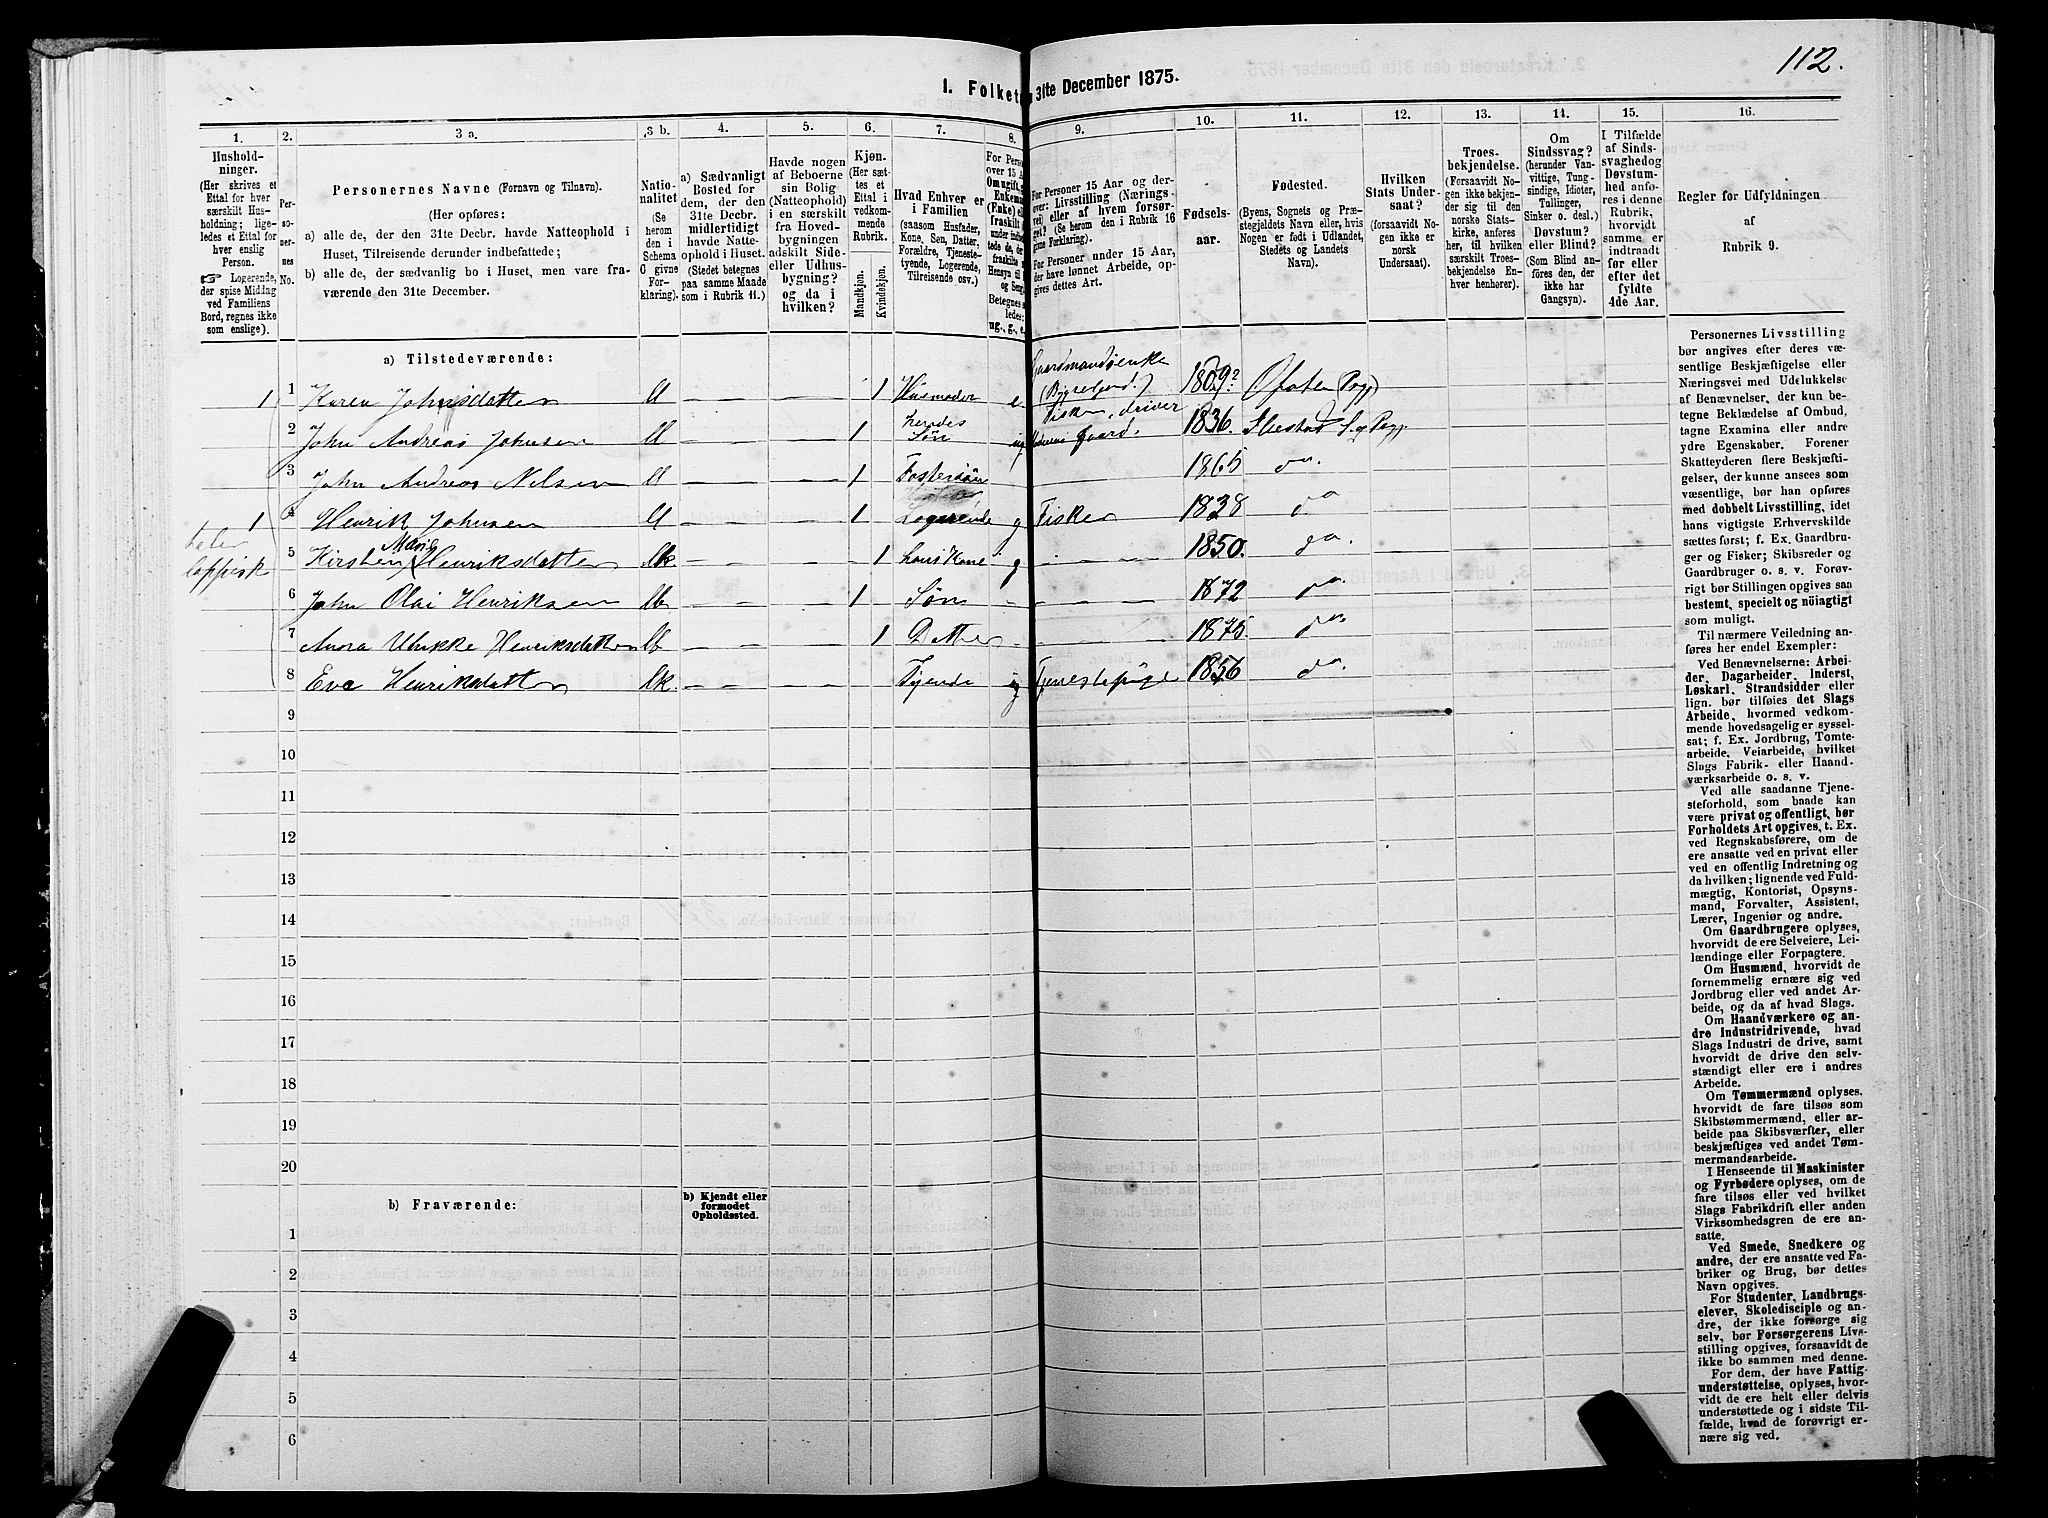 112.
I. Folket 31te December 1875.
1. 2. 3 a. 3 b. 4. 5. 6. 7. 8. 9. 10. 11. 12. 13. 14. 15. 16.
Hushold-
ninger.
(Her skrives et
Ettal for hver
særskilt Hus-
holdning; lige-
ledes et Ettal for
hver enslig
Person.
☞ Logerende,
der spise Middag
ved Familiens
Bord, regnes ikke
som enslige).
Per-
so-
ner-
nes
No.
Personernes Navne (Fornavn og Tilnavn).
(Her opføres:
a) alle de, der den 31te Decbr. havde Natteophold i
Huset, Tilreisende derunder indbefattede;
b) alle de, der sædvanlig bo i Huset, men vare fra-
værende den 31te December.
Natio-
nalitet
(Se
herom
den i
Schema
G givne
For-
klaring).
a) Sædvanligt
Bosted for
dem, der den
31te Decbr.
midlertidigt
havde Natte-
ophold i Huset.
(Stedet betegnes
paa samme Maade
som i Rubrik 11.)
Havde nogen
af Beboerne
sin Bolig
(Natteophold)
i en særskilt
fra Hoved-
bygningen
adskilt Side-
eller Udhus-
bygning?
og da i
hvilken?
Kjøn.
(Her sæt-
tes et
Ettal i
vedkom-
mende
Rubrik.
Mandkjøn.
Kvindekjøn.
Hvad Enhver er
i Familien
(saasom Husfader,
Kone, Søn, Datter,
Forældre, Tjeneste-
tyende, Logerende,
Tilreisende osv.)
For Perso
over 15 A
Om ugift, g
Enkema
(Enke) el
fraskilt
Betegnes s
ledes:
ug., g., e.
For Personer 15 Aar og der-
over: Livsstilling (Nærings-
vei) eller af hvem forsør-
get? (Se herom den i Rubrik 16
givne Forklaring).
For Personer under 15 Aar,
der have lønnet Arbeide, op-
gives dettes Art.
Fødsels-
aar.
Fødested.
(Byens, Sognets og Præ-
stegjeldets Navn eller, hvis
Nogen er født i Udlandet,
Stedets og Landets
Navn).
Hvilken
Stats Under-
saat?
(forsaavidt No-
gen ikke er
norsk
Undersaat).
Troes-
bekjendelse.
(Forsaavidt No-
gen ikke bekjen-
der sig til den
norske Stats-
kirke, anføres
her, til hvilken
særskilt Troes-
bekjendelse En-
hver henhører).
Om
Sindssvag?
(herunder Van-
vittige, Tung-
sindige, Idioter,
Tullinger,
Sinker o. desl.)
Døvstum?
eller Blind?
(Som Blind an-
føres den, der
ikke har
Gangsyn).
I Tilfælde
af Sinds-
svaghedog
Døvstum-
hed anfø-
res i denne
Rubrik,
hvorvidt
samme er
indtraadt
før eller
efter det
fyldte
4de Aar.
Regler for Udfyldningen
af
Rubrik 9.
a) Tilstedeværende:
1 1 Karen Johnsdatter N 1 Husmoder e Gaardmandsenke (Bygseljord.) 1809? Ofoten (Prgj)
2 John Andreas Johnsen N 1 hendes Søn ug Fisker, driver Moderens Gaard. 1836. Ibestad S. og Prgj.
3 John Andreas Nilsen N 1 Fostersøn 1865 do.
1 4 Henrik Johnsen N 1 Logerende g Fisker 1838 do
taler lappisk
5 Kirsten Marie Henriksdatter lk 1 hans Kone g 1850. do.
6 John Olai Henriksen lb 1 Søn 1872 do
7 Anora Ulrikke Henriksdatter lb 1 Datter 1875. do.
8 Eva Henriksdatter lk. Tyende ug Tjenestepige 1856 do.
9
10
11
12
13
14
15
16
17
18
19
20
b) Fraværende:
b) Kjendt eller
formodet
Opholdssted.
1
2
3
4
5
6
Personernes Livsstilling
bør angives efter deres væ-
sentlige Beskjæftigelse eller
Næringsvei med Udelukkelse
af Benævnelser, der kun be-
tegne Beklædelse af Ombud,
tagne Examina eller andre
ydre Egenskaber. Forener
Skatteyderen flere Beskjæfti-
gelser, der kunne ansees som
væsentlige, bør han opføres
med dobbelt Livsstilling, idet
hans vigtigste Erhvervskilde
sættes først; f. Ex. Gaardbru-
ger og Fisker; Skibsreder og
Gaardbruger o. s. v. Forøv-
rigt bør Stillingen opgives saa
bestemt, specielt og nöiagtigt
som muligt.
Til nærmere Veiledning an-
føres her endel Exempler:
Ved Benævnelserne: Arbei-
der, Dagarbeider, Inderst,
Løskarl, Strandsidder eller
lign. bør tilføies det Slags
Arbeide, hvormed vedkom-
mende hovedsagelig er syssel-
sat; f. Ex. Jordbrug, Tomte-
arbeide, Veiarbeide, hvilket
Slags Fabrik- eller Haand-
værksarbeide o. s. v.
Ved alle saadanne Tjene-
steforhold, som baade kan
være privat og offentligt, bør
Forholdets Art opgives, t. Ex.
ved Regnskabsførere, om de
ere ansatte ved en privat eller
ved en offentlig Indretning og
da hvilken; lignende ved Fuld-
mægtig, Kontorist, Opsyns-
mand, Forvalter, Assistent,
Lærer, Ingeniør og andre.
Om Gaardbrugere oplyses,
hvorvidt de ere Selveiere, Lei-
lændinge eller Forpagtere.
Om Husmænd, hvorvidt de
fornemmelig ernære sig ved
Jordbrug eller ved andet Ar-
beide, og da af hvad Slags.
Om Haandværkere og an-
dre Industridrivende, hvad
Slags Industri de drive, samt
hvorvidt de drive den selv-
stændigt eller ere i andres
Arbeide.
Om Tømmermænd oplyses,
hvorvidt de fare tilsøs som
Skibstømmermænd, eller ar-
beide paa Skibsværfter, eller
beskjæftiges ved andet Tøm-
mermandsarbeide.
I Henseende til Maskinister
og Fyrbødere oplyses, om de
fare tilsøs eller ved hvilket
Slags Fabrikdrift eller anden
Virksomhedsgren de ere an-
satte.
Ved Smede, Snedkere og
andre, der ere ansatte ved Fa-
briker og Brug, bør dettes
Navn opgives.
For Studenter, Landbrugs-
elever, Skoledisciple og an-
dre, der ikke forsørge sig
selv, bør Forsørgerens Livs-
stilling opgives, forsaavidt de
ikke bo sammen med denne.
For dem, der have Fattig-
understøttelse, oplyses, hvor-
vidt de ere helt eller delvis
understøttede og i sidste Til-
fælde, hvad de forøvrigt er-
nære sig ved.